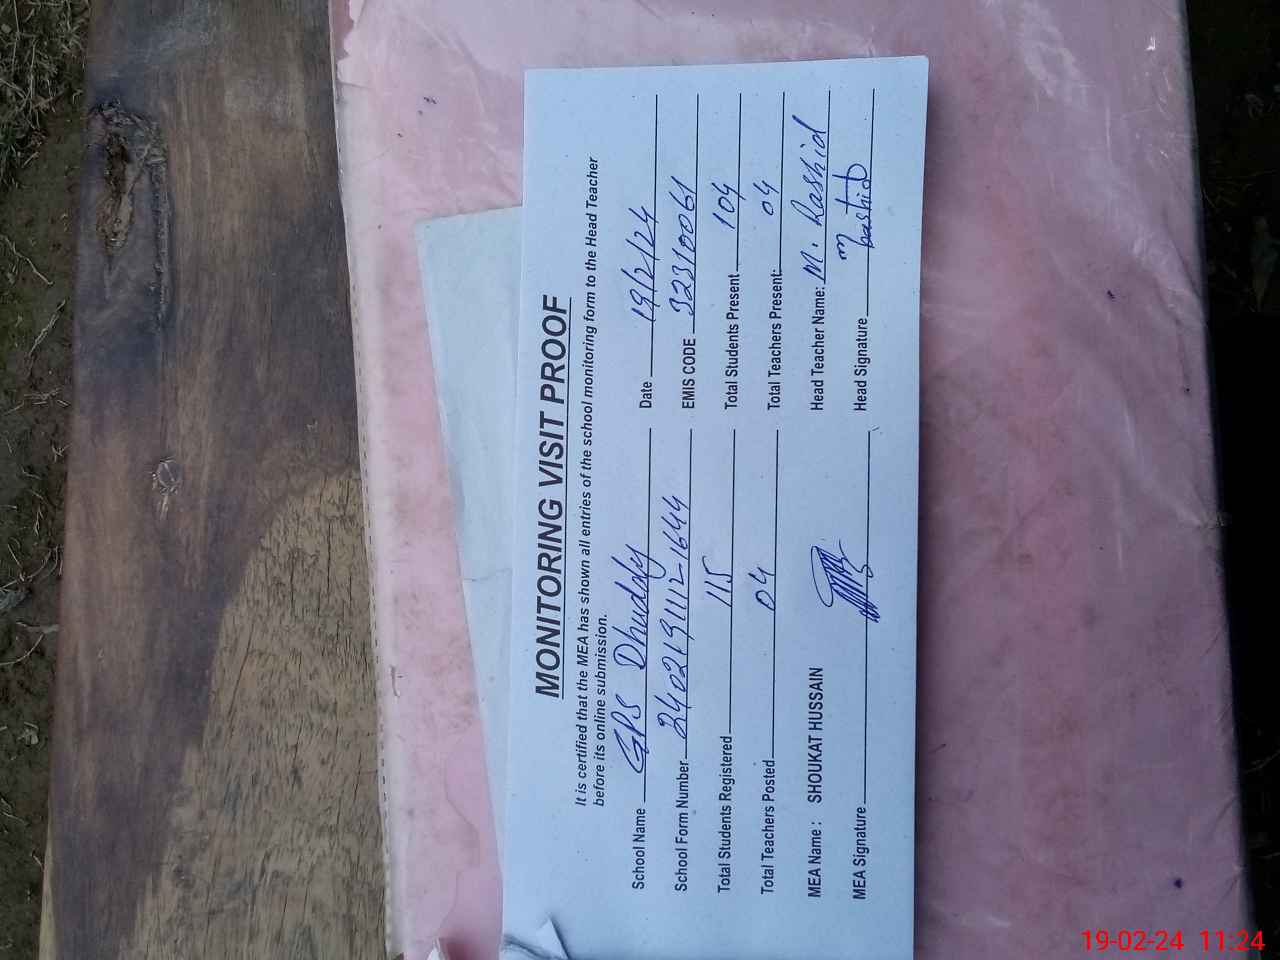 MONITORING VISIT PROOF
It is certified that the MEA has shown all entries of the school monitoring form to the Head Teacher
before its online submission.
School Name GPS Dhuddy Date 19/2/24
School Form Number 24021911121644 EMIS CODE 32310061
Total Students Registered 115 Total Students Present 104
Total Teachers Posted 04 Total Teachers Present: 04
MEA Name : SHOUKAT HUSSAIN Head Teacher Name: M. Rashid
MEA Signature Head Signature M Rashid
19-02-24 11:24